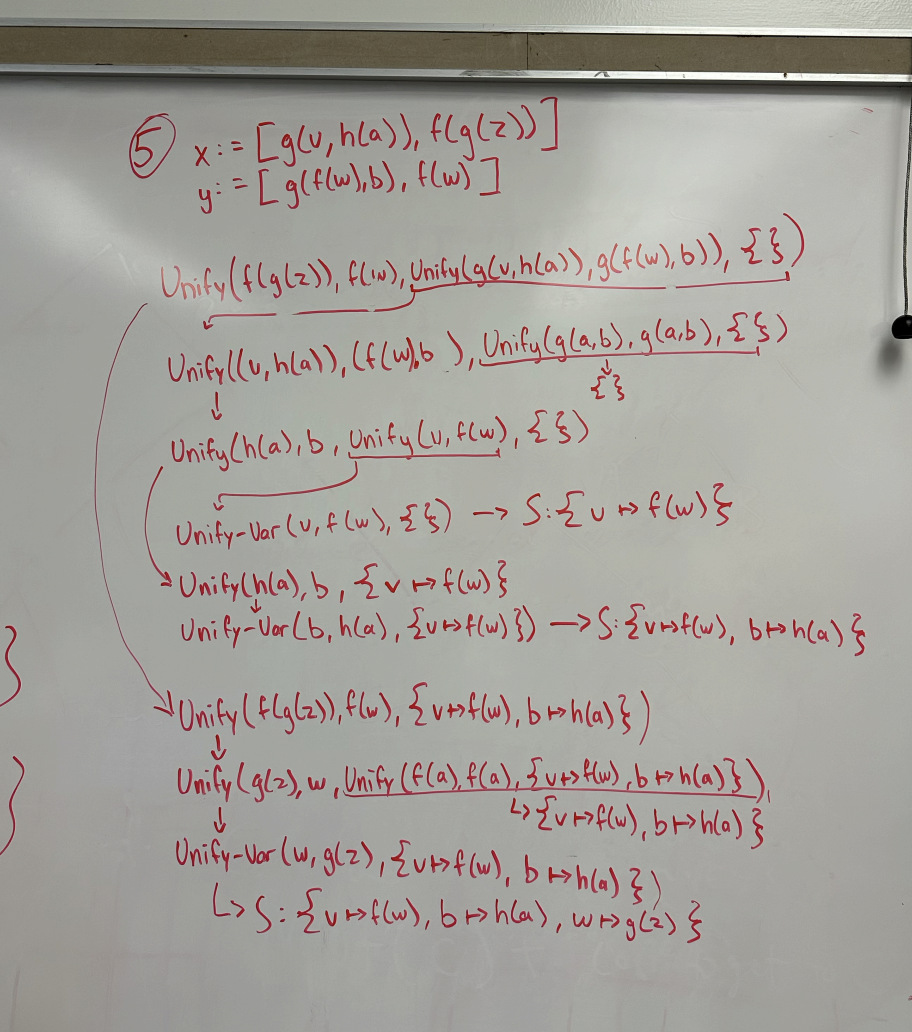 ⑤ x:= [g(v, h(a)), f(g(z))]
y:= [g(f(w),b), f(w)]
Unify(f(g(z)), f(w), Unify(g(v,h(a)), g(f(w),b)), {})
Unify((v,h(a)), (f(w),b ), Unify(g(a,b), g(a,b), {})
↓ {}
Unify(h(a), b, Unify(v, f(w), {})
Unify-Var(v, f(w), {}) → S:{v ↦ f(w)}
Unify(h(a), b, {v ↦ f(w)}
Unify-Var(b, h(a), {v↦f(w)}) → S:{v↦f(w), b↦h(a)}
Unify(f(g(z)), f(w), {v↦f(w), b↦h(a)})
↓
Unify(g(z), w, Unify(f(a), f(a), {v↦f(w), b↦h(a)}),
↓ ↳ {v↦f(w), b↦h(a)}
Unify-Var(w, g(z), {v↦f(w), b↦h(a)})
↳ S: {v↦f(w), b↦h(a), w↦g(z)}
}
}